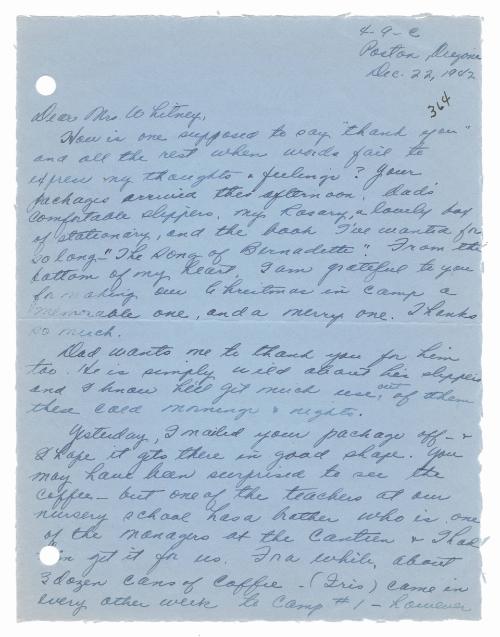 4-9-C
Poston, Arizona
Dec. 22, 1942
364
Dear Mrs Whitney,
How is one supposed to say, "thank you"
and all the rest when words fail to
express my thoughts & feelings? Your
packages arrived this afternoon. Dad's
comfortable slippers, my Rosary, a lovely box
of stationary, and the book I've wanted for
so long - "The Song of Bernadette". From the
bottom of my heart, I am grateful to you
for making our Christmas in camp a
memorable one, and a merry one. Thanks
so much.
Dad wants me to thank you for him
too. He is simply wild about his slippers
and I know he'll get much use out of them
these cold mornings & nights.
Ysterday, I mailed your package off - &
I hope it gts there in good shape. You
may have been surprised to see the
coffee - but one of the teachers at our
nursery school has a brother who is one
of the managers at the Canteen & I had
get it for us. For a while, about
3 dozen cans of coffee - (Iris) came in
every other week to Camp #1 - however